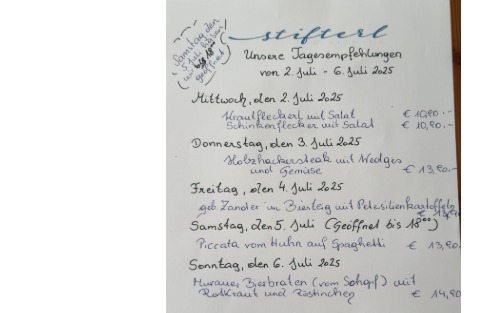 Samstag, den
5. Juli haben
wir bis 18⁰⁰
geöffnet
stifterl
Unsere Tagesempfehlungen
von 2. Juli - 6. Juli 2025
Mittwoch, den 2. Juli 2025
Krautfleckerl mit Salat € 10,90.-
Schinkenflecker mit Salat € 10,90.-
Donnerstag, den 3. Juli 2025
Holzhackersteak mit Wedges
und Gemüse € 13,90.-
Freitag, den 4. Juli 2025
geb. Zander im Bierteig mit Petersilienkartoffeln
€ 13,90
Samstag, den 5. Juli (Geöffnet bis 18⁰⁰)
Piccata vom Huhn auf Spaghetti € 13,90.
Sonntag, den 6. Juli 2025
Murauer Bierbraten (vom Schopf) mit
Rotkraut und Röstinchen € 14,90